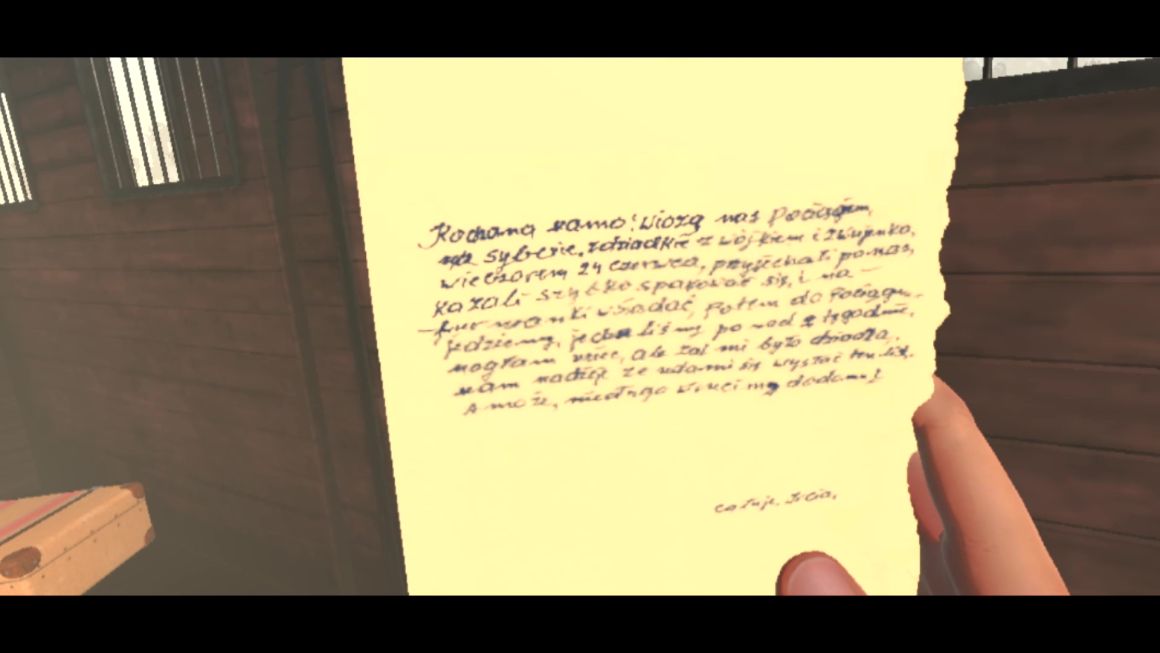 Kochana mamo! wiozą nas pociągem
na syberie. z dziadkie z wójkiem i zwujenko,
wieczorem 24 czerwca, przyjechali po nas,
kazali szybko spakować się, i na
furmanki wsadać, potem do pociągu.
jedziemy, jechaliśmy ponad 2 tygodnie,
mogłam uciec, ale żal mi było dziadka,
mam nadzieję ze udami się wysłać ten list.
A może, niedługo wrócimy dodomu!
całuje.Ircia,